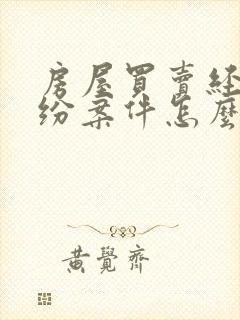 房屋買賣經
紛案件怎麼
黃覺齊